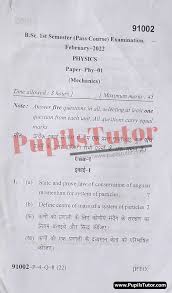 91002
B.Sc. 1st Semester (Pass Course) Examination,
February-2022
PHYSICS
Paper- Phy-01
(Mechanics)
Time allowed : 3 hours ]
[ Maximum marks : 45
Note : Answer five questions in all, selecting at least one
question from each unit. All questions carry equal
marks.
PupilsTutor
www.PupilsTutor.com
Unit-I
इकाई-I
1. (a) State and prove law of conservation of angular
momentum for system of particles.
(b) Define centre of mass of a system of particles. 2
(क) कणों की प्रणाली के लिए कोणीय
नियम
और सिद्ध कीजिए।
(ख) कणों की एक प्रणाली के
केन्द्र को परिभाषित
कीजिए।
91002-P-4-Q-8 (22)
www.PupilsTutor.com